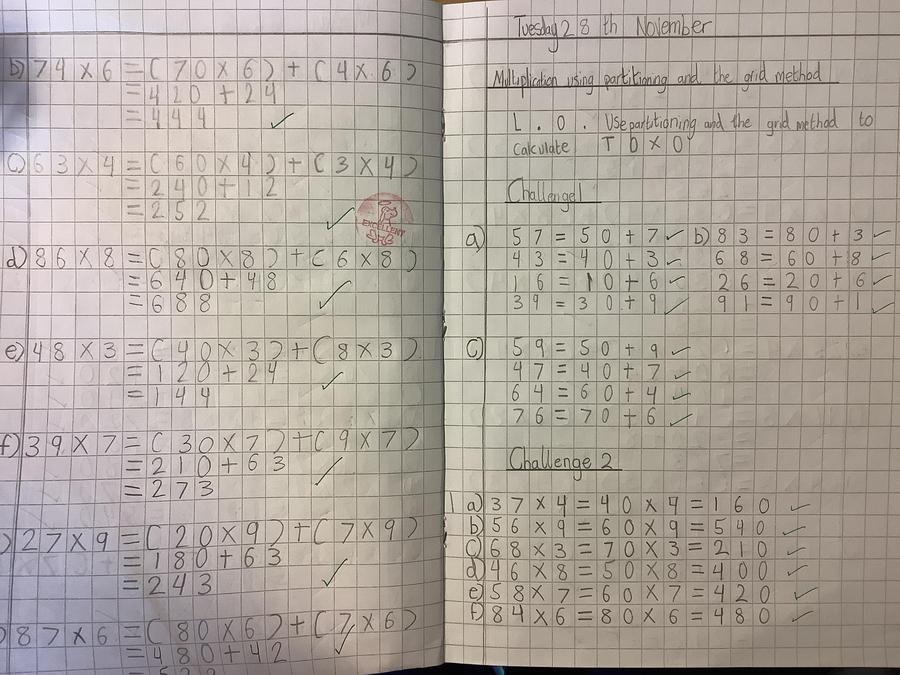 b) 74 × 6 = (70 × 6) + (4 × 6)
= 420 + 24
= 444
c) 63 × 4 = (60 × 4) + (3 × 4)
= 240 + 12
= 252
EXCELLENT
d) 86 × 8 = (80 × 8) + (6 × 8)
= 640 + 48
= 688
e) 48 × 3 = (40 × 3) + (8 × 3)
= 120 + 24
= 144
f) 39 × 7 = (30 × 7) + (9 × 7)
= 210 + 63
= 273
) 27 × 9 = (20 × 9) + (7 × 9)
= 180 + 63
= 243
) 87 × 6 = (80 × 6) + (7 × 6)
= 480 + 42
Tuesday 28 th November
Multiplication using partitioning and the grid method
L.O. Use partitioning and the grid method to
calculate TO × O
Challenge 1
a) 57 = 50 + 7 b) 83 = 80 + 3
43 = 40 + 3 68 = 60 + 8
16 = 10 + 6 26 = 20 + 6
39 = 30 + 9 91 = 90 + 1
c) 59 = 50 + 9
47 = 40 + 7
64 = 60 + 4
76 = 70 + 6
Challenge 2
1 a) 37 × 4 = 40 × 4 = 160
b) 56 × 9 = 60 × 9 = 540
c) 68 × 3 = 70 × 3 = 210
d) 46 × 8 = 50 × 8 = 400
e) 58 × 7 = 60 × 7 = 420
f) 84 × 6 = 80 × 6 = 480